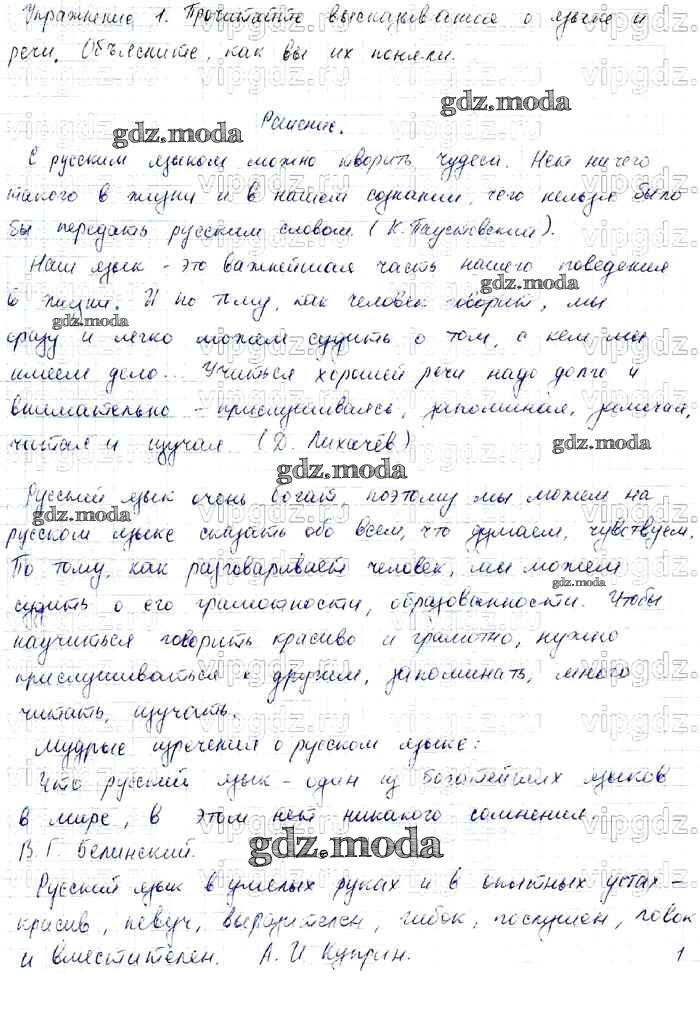 Упражнение 1. Прочитайте высказывания о языке и
речи. Объясните, как вы их поняли.
Решение.
С русским языком можно творить чудеса. Нет ничего
такого в жизни и в нашем сознании, чего нельзя было
бы передать русским словом (К. Паустовский).
Наш язык - это важнейшая часть нашего поведения
в жизни. И по тому, как человек говорит, мы
сразу и легко можем судить о том, с кем мы
имеем дело... Учиться хорошей речи надо долго и
внимательно - прислушиваясь, запоминая, замечая,
читая и изучая (Д. Лихачёв)
Русский язык очень богат, поэтому мы можем на
русском языке сказать обо всем, что думаем, чувствуем.
По тому, как разговаривает человек, мы можем
судить о его грамотности, образованности. Чтобы
научиться говорить красиво и грамотно, нужно
прислушиваться к другим, запоминать, много
читать, изучать.
Мудрые изречения о русском языке:
Что русский язык - один из богатейших языков
в мире, в этом нет никакого сомнения.
В. Г. Белинский.
Русский язык в умелых руках и в опытных устах -
красив, певуч, выразителен, гибок, послушен, ловок
и вместителен. А. И Куприн.
1
gdz.moda
vipgdz.ru